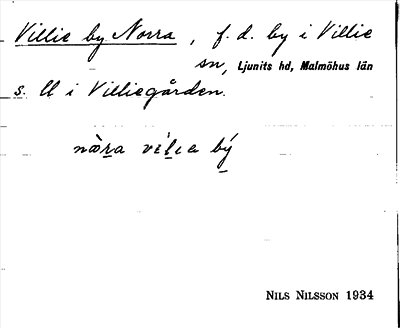 Villie by Norra, f. d. by i Villie
sn, Ljunits hd, Malmöhus län
s. ll i Villiegården.
nòra vílıe bý
NILS NILSSON 1934